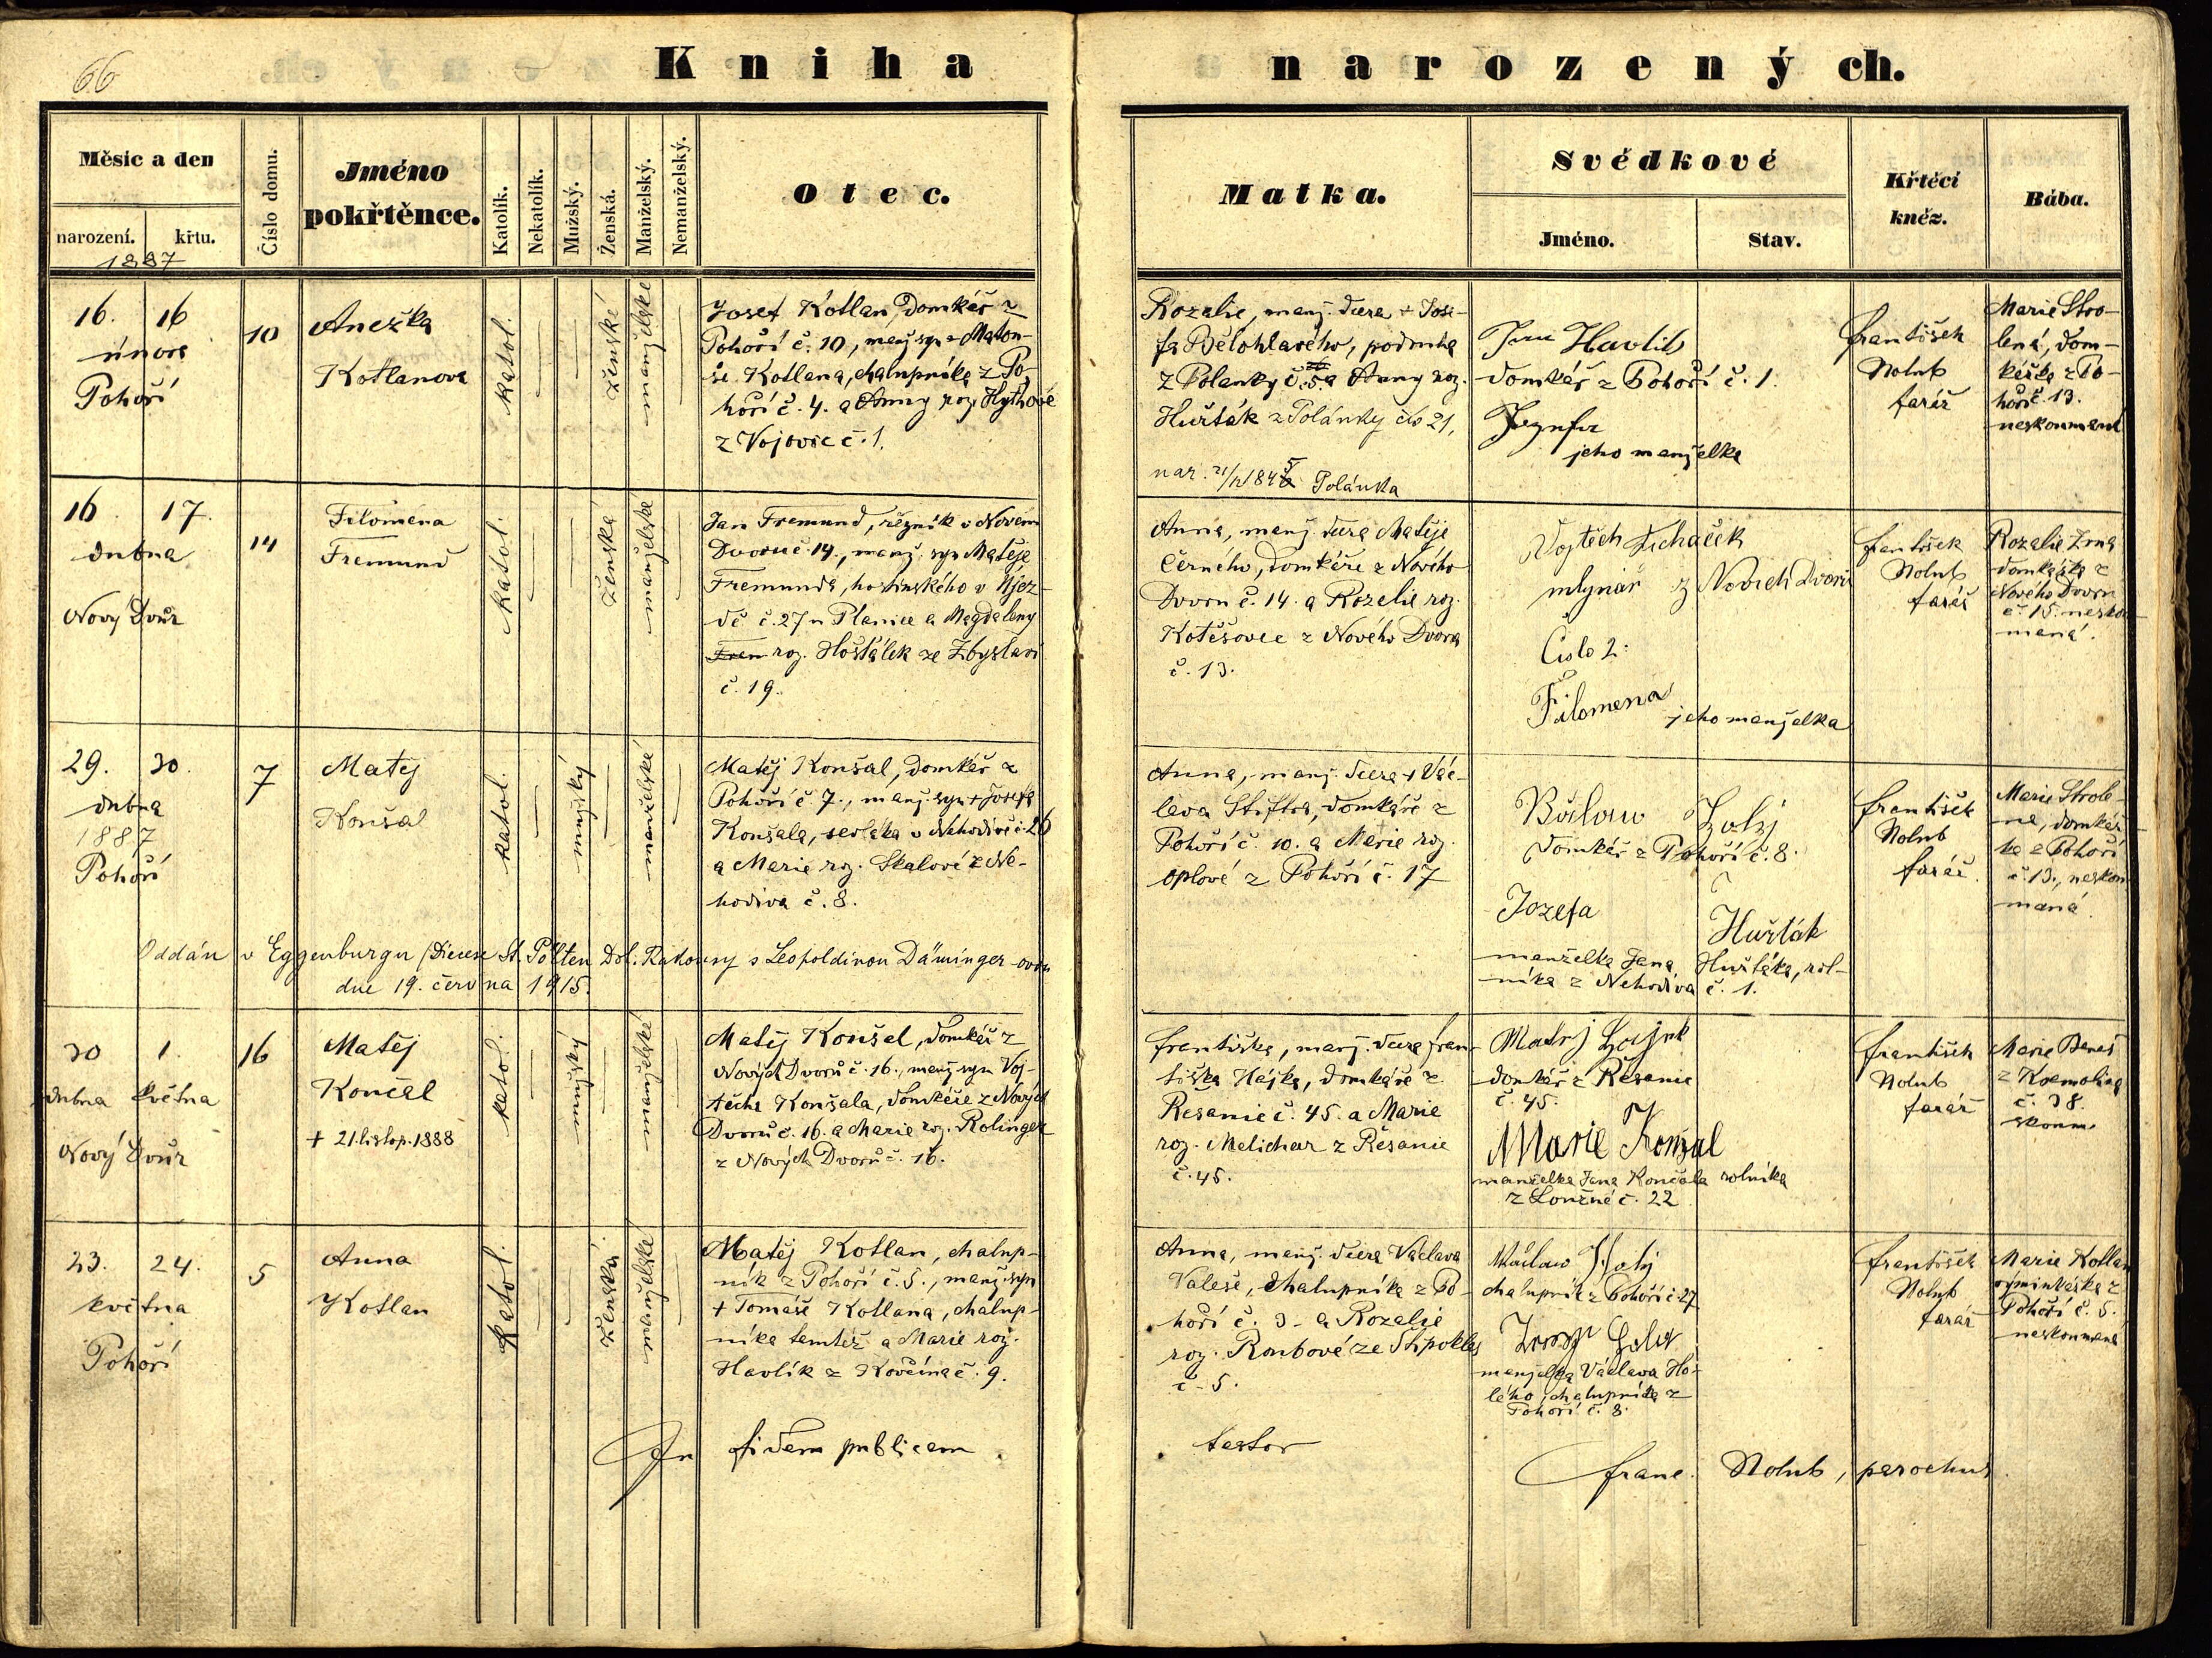 66
Kniha narozených.
Měsíc a den
narození.
křtu.
1887
Číslo domu.
Jméno
pokřtěnce.
Katolík.
Nekatolík.
Mužský.
Ženská.
Manželský.
Nemanželský.
Otec.
Matka.
Svědkové
Jméno.
Stav.
Křtécí
kněz.
Bába.
16. 16
února
Pohoří
10
Anežka
Kotlanova
katol.
ženské
manželské
Josef Kotlan, domkář z
Pohoří č. 10, manž. syn Matou-
še Kotlana, chalupníka z Po-
hoří č. 4. a Anny roz. Hythové
z Vojovic č. 1.
Rozalie, manž. dcera + Jose-
fa Bělohlavého, podruha
z Polanky č. 5 a Anny roz.
Hušták z Polánky čís 21,
nar. 1845 Polánka
Jan Havlik
domkář z Pohoří č. 1.
Jozefa
jeho manželka
František
Holub
farář
Marie Stro-
lená, dom-
kářka z Po-
hoří č. 13.
neskoumaná
16. 17.
dubna
Nový Dvůr
14
Filoména
Fremund
katol.
ženská
manželské
Jan Fremund, řezník v Novém
Dvoru č. 14., manž. syn Matěje
Fremunda, hostinského v Újez-
dě č. 27 u Planice a Magdaleny
Frem roz. Hošťálek ze Zbyslavi
č. 19.
Anna, manž. dcera Matěje
Černého, domkáře z Nového
Dvoru č. 14. a Rozalie roz.
Kotěšovec z Nového Dvora
č. 13.
Vojtěch Tichaček
mlynář z Novich Dvorů
Čislo 2.
Filomena
jeho manželka
František
Holub
farář
Rozalie Zrna
domkářka z
Nového Dvoru
č. 15. neskou-
maná.
29. 30.
dubna
1887
Pohoří
7
Matěj
Konšal
katol.
mužský
manželské
Matěj Konšal, domkář z
Pohoří č. 7., manž. syn + Josefa
Konšala, sedláka v Nehodivě č. 26
a Marie roz. Skalové z Ne-
hodiva č. 8.
Anna, manž. dcera + Vác-
lava Štiftra, domkáře z
Pohoří č. 10. a Marie roz.
Oplové z Pohoří č. 17
domkář z Pohoří č. 8.
Jozefa Hušták
manželka Jana Huštáka, rol-
níka z Nehodiva č. 1.
František
Holub
farář.
Marie Strole-
ná, domkář-
ka z Pohoří
č. 13., neskou-
maná
Oddán v Eggenburgu (Diecese St. Pölten Dol. Rakousy s Leopoldinou Däminger-ovou
dne 19. června 1915.
30 1.
dubna května
Nový Dvůr
16
Matěj
Končal
+ 21. listop. 1888
katol.
mužský
manželské
Matěj Konšel, domkář z
Nových Dvorů č. 16., manž. syn Voj-
těcha Konšala, domkáře z Nových
Dvorů č. 16. a Marie roz. Rolinger
z Nových Dvorů č. 16.
Františka, manž. dcera Fran-
tiška Hájka, domkáře z
Řesanic č. 45. a Marie
roz. Melichar z Řesanic
č. 45.
Matěj
domkář z Řesanic
č. 45.
Marie Konšal
manželka Jana Končala rolníka
z Loužné č. 22
František
Holub
farář
Marie Beneš
č. 38.
skoum.
23. 24.
května
Pohoří
5
Anna
Kotlan
katol.
ženská
manželské
Matěj Kotlan, chalup-
ník z Pohoří č. 5., manž. syn
+ Tomáše Kotlana, chalup-
níka tamtéž a Marie roz.
Havlík z Kovčína č. 9.
Anna, manž. dcera Václava
Valeše, chalupníka z Po-
hoří č. 3 a Rozalie
roz. Roubové ze Štipokles
č. 5.
Waclaw Holy
chalupník z Pohoří č. 27
manželka Václava Ho-
lého, chalupníka z
Pohoří č. 8.
František
Holub
farář
Marie Kotlan
výminkářka z
Pohoří č. 5.
neskoumaná
In fidem publicam testor
Franc. Holub, parochus.